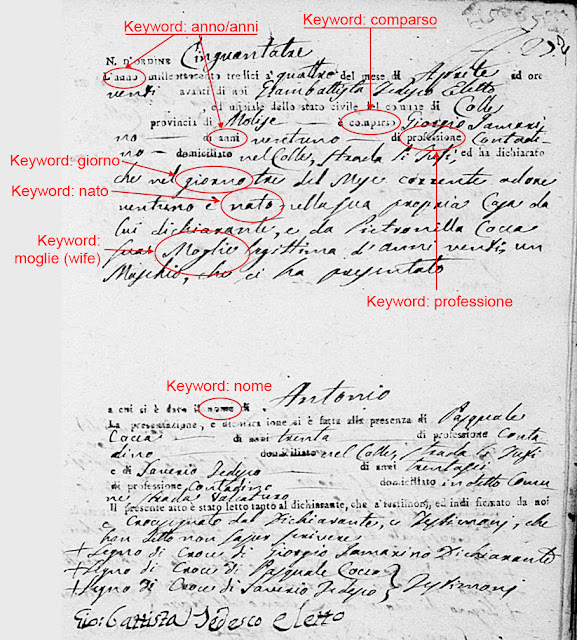 Keyword: anno/anni
Keyword: comparso
N. D'ORDINE Cinquantatre
L'anno milleottocento tredici a' quattro del mese di Aprile ad ore
venti avanti di noi Giambattista Tedesco Eletto
, ed ufiziale dello stato civile del comune di Colle
provincia di Molise è comparso Giorgio Iamari
no di anni ventuno di professione Contadi
no domiciliato nel Colle, Strada li Tufi, ed ha dichiarato
Keyword: giorno
che nel giorno tre del Mese corrente ad ore
Keyword: nato
ventuno è nato nella sua propria Casa da
lui dichiarante, e da Petronilla Cocca
Keyword:
moglie (wife)
sua Moglie legittima d'anni venti, un
Maschio, che ci ha presentato
Keyword: professione
Keyword: nome
a cui si è dato il nome di Antonio
La presentazione, e si è fatta alla presenza di Pasquale
Cocca di anni trenta di professione Conta
dino domiciliato nel Colle, strada li Tufi
e di Saverio Tedesco di anni trentasei
di professione Contadino domiciliato in detto Comu
ne strada
Il presente atto è stato letto tanto al dichiarante, che a' testimonj, ed indi firmato da noi
e Crocesegnato dal Dichiarante, e Testimonj, che
han detto non saper scrivere
+ Segno di Croce di Giorgio Iamarino Dichiarante
+ Segno di Croce di Pasquale Cocca
+ Segno di Croce di Saverio Tedesco } Testimonj
Gio: battista Tedesco eletto